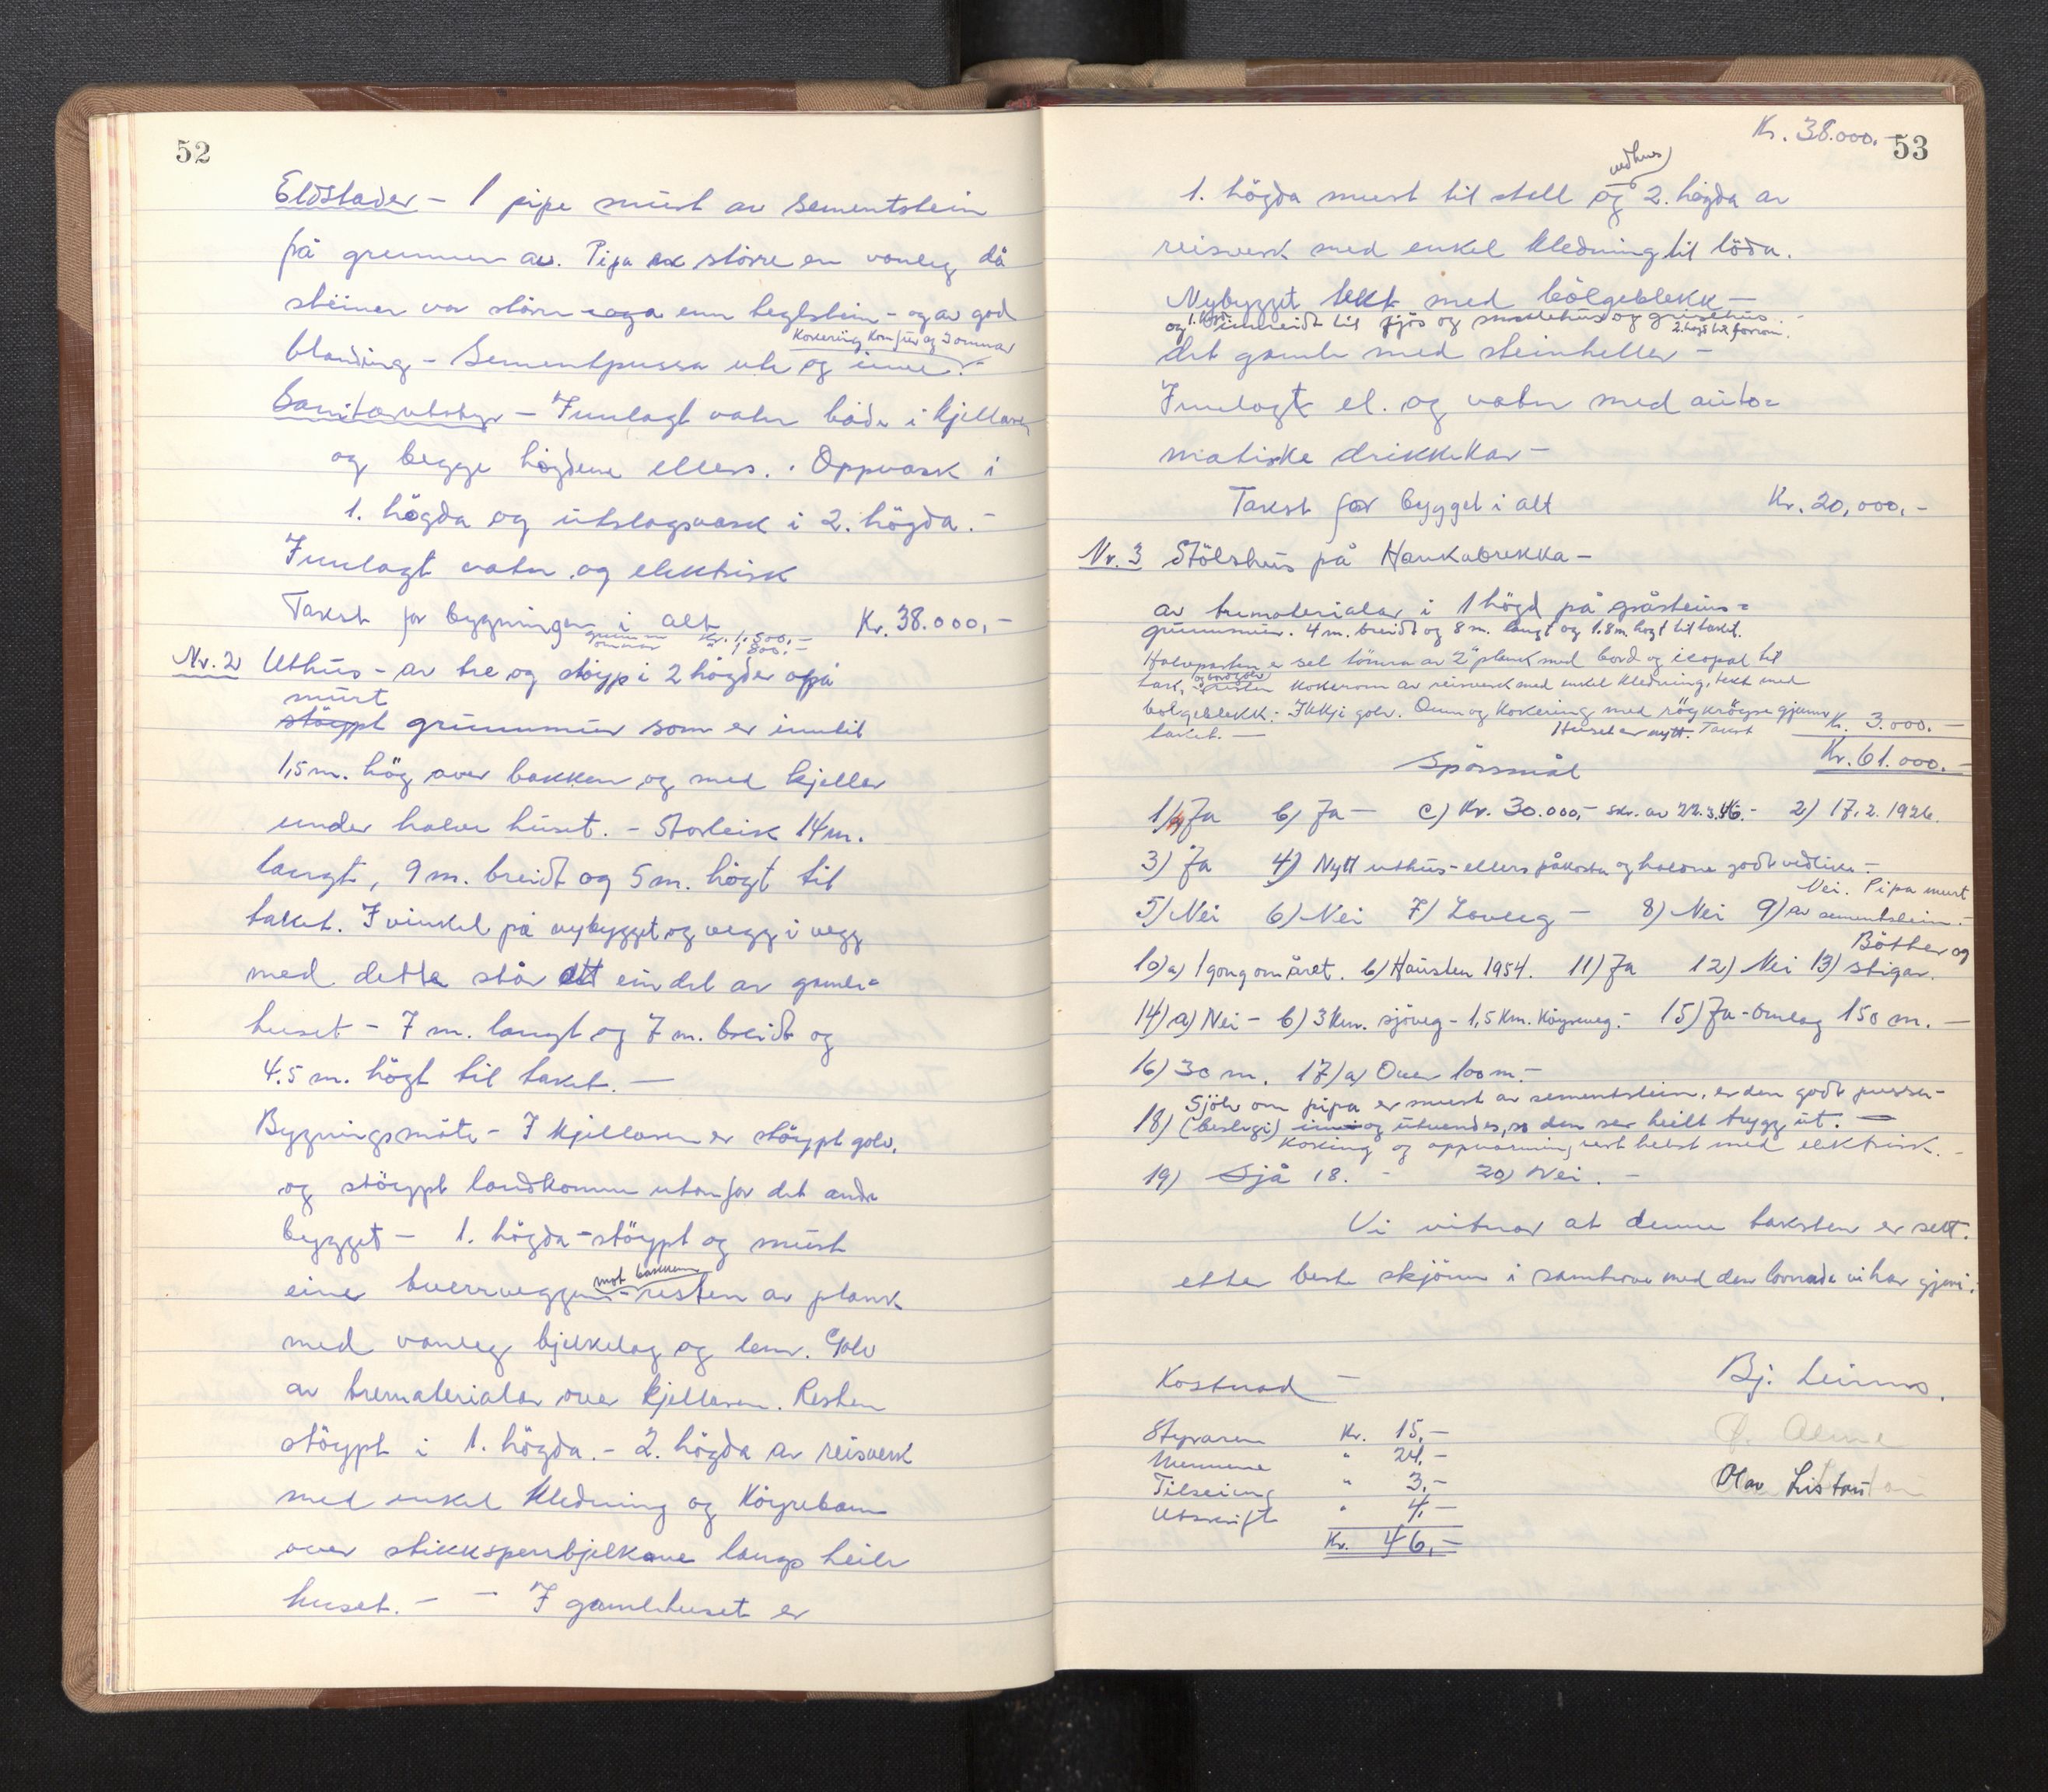 52
Eldstader - 1 pipe murt av sementstein
på grunnen av. Pipa er större en vanleg då
steinen var större enn teglstein - og av god
Kokering Komfur og 3 omnar
blanding - Sementpussa ute og inne.-
Sanitærutstyr - Innlagt vatn både i kjellaren
og begge högdene ellers. Oppvask i
1. högda og utslagsvask i 2. högda. -
Innlagt vatn og elektrisk
Takst for bygningen i alt Kr. 38.000,-
grunnm Kr. 1.500.-
omnar " 1.800.-
Nr. 2 Uthus - av tre og støyp i 2 högder på
murt
støypt grunnmur som er inntil
1,5 m. hög over bakken og med kjeller
under halve huset. - Storleik 14 m.
langt, 9 m. breidt og 5 m. högt til
taket. I vinkel på nybygget og vegg i vegg
med dette står ein del av gamle-
huset - 7 m. langt og 7 m. breidt og
4.5 m. högt til taket. -
Bygningsmåte - I kjellaren er støypt golv,
og støypt landkomme utanfor det andre
bygget - 1. högda - støypt og murt
mot bakken
eine tverrveggen - resten av plank
med vanleg bjelkelag og lem. Golv
av trematerialar over kjellaren. Resten
støypt i 1. högda. - 2. högda av reisverk
med enkel kledning og köyrebom
over stikksperrbjelkane langs heile
huset. - - I gamlehuset er
Kr. 38.000.-
53
vedhus
1. högda murt til stall og 2. högda av
reisverk med enkel kledning til löda.
Nybygget tekt med bölgeblekk -
og 1. högd innreidt til fjös og smalehus og grisehus. 2. högd til forrom.
det gamle med steinheller -
Innlagt el. og vatn med auto=
matiske drikkekar -
Takst for bygget i alt Kr. 20,000.-
Nr. 3 Stölshus på Haukabrekka -
av trematerialar i 1 högd på gråsteins=
grunnmur. 4 m. breidt og 8 m. langt og 1.8 m. högt til taket.
Halvparten er sel tömra av 2" plank med bord og icopal til
og bordgolv
tak, resten kokerom av reisverk med enkel kledning, tekt med
bolgeblekk. Ikkje golv. Omn og kokering med röykröyr gjennom
taket. - Huset er nytt. Takst Kr. 3.000.-
Kr. 61.000.-
Spörsmål
1) a) Ja b) Ja - c) Kr. 30.000,- skr. av 22.3.46.- 2) 17.2.1926.
3) Ja 4) Nytt uthus - ellers påkosta og haldne godt vedlike.-
Nei. Pipa murt
5) Nei 6) Nei 7) Lovleg - 8) Nei 9) av sementstein.-
Bötter og
10) a) 1 gong om året. b) Hausten 1954. 11) Ja 12) Nei 13) stigar.
14) a) Nei - b) 3 km. sjöveg - 1,5 km. köyreveg.- 15) Ja - omlag 150 m. -
16) 30 m. 17) a) Over 100 m.-
Sjölv om pipa er murt av sementstein, er den godt pussa -
18) (beslegi) inni og utvendes, so den ser heilt trygg ut. -
Koking og oppvarming vert helst med elektrisk. -
19) Sjå 18. - 20) Nei. -
Vi vitnar at denne taksten er sett
etter beste skjönn i samhøve med den lovnada vi har gjevi.
Kostnad -
Bj. Leirmo.
Styraren Kr. 15,-
O. Alme
Mennene " 24,-
Tilseing " 3,-
Olav Listau
Utskrift " 4,-
Kr. 46,-